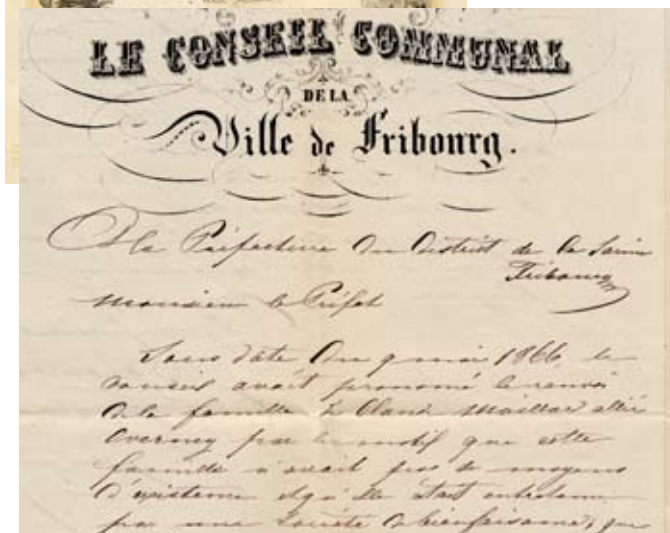 LE CONSEIL COMMUNAL
DE LA
Ville de Fribourg.
A la Préfecture du District de la Sarine
Fribourg
Monsieur le Préfet
Sous date du 9 mai 1866, le
Conseil avait prononcé le renvoi
de la famille de Claude Maillard allié
Overney par le motif que cette
famille n'avait pas de moyens
d'existence et qu'elle était entretenue
par une Société de bienfaisance, que